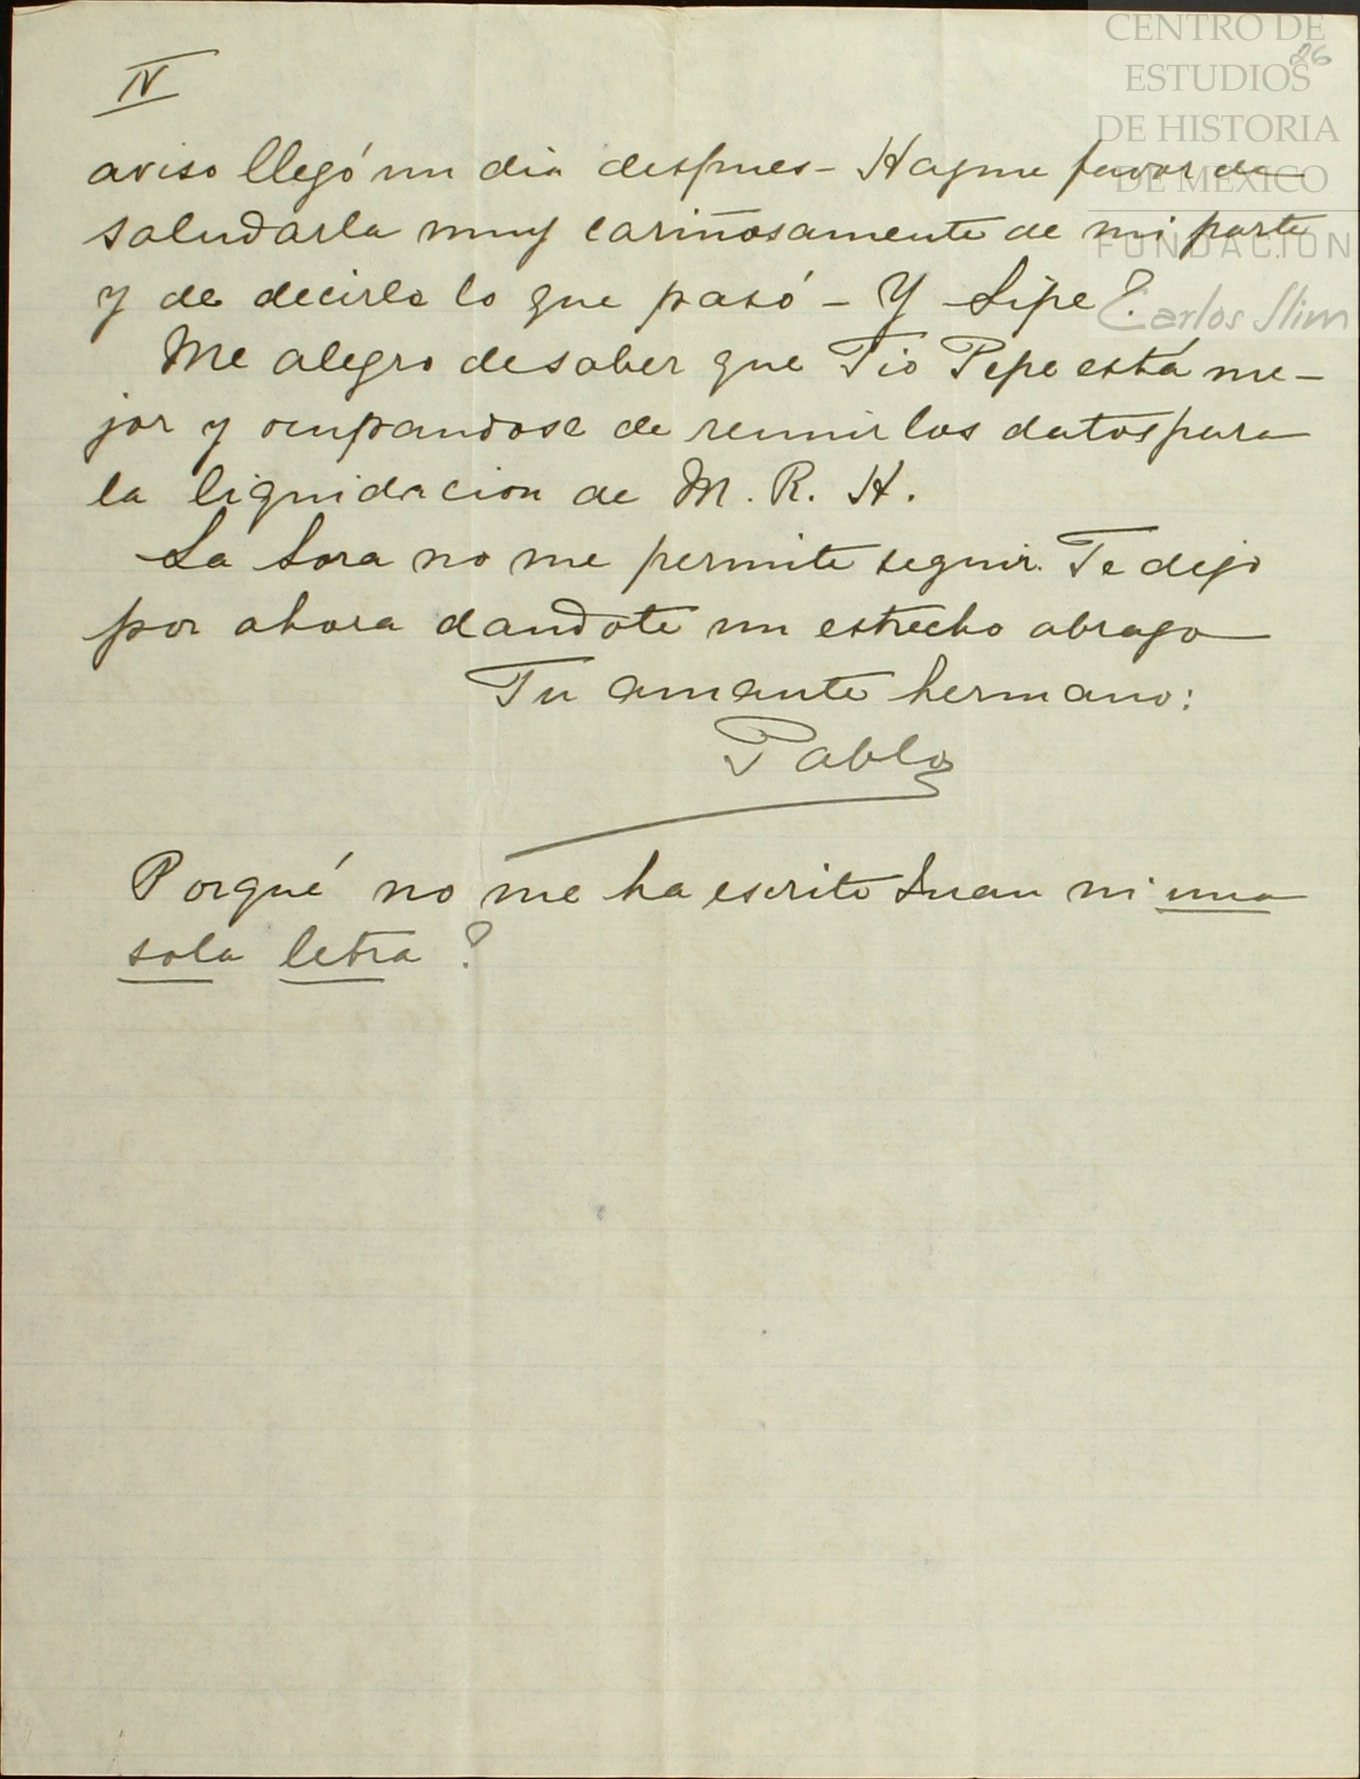 CENTRO DE
ESTUDIOS
DE HISTORIA
DE MÉXICO
FUNDACIÓN
Carlos Slim
26
IV
aviso llegó un dia despues - Hagme favor de
saludarla muy cariñosamente de mi parte
y de decirle lo que pasó - Y Lipe?
Me alegro de saber que Tio Pepe está me-
jor y ocupandose de reunir los datos para
la liquidacion de M. R. H.
La hora no me permite seguir. Te dejo
por ahora dandote un estrecho abrazo
Tu amante hermano:
Pablo
Porqué no me ha escrito Juan ni una
sola letra?